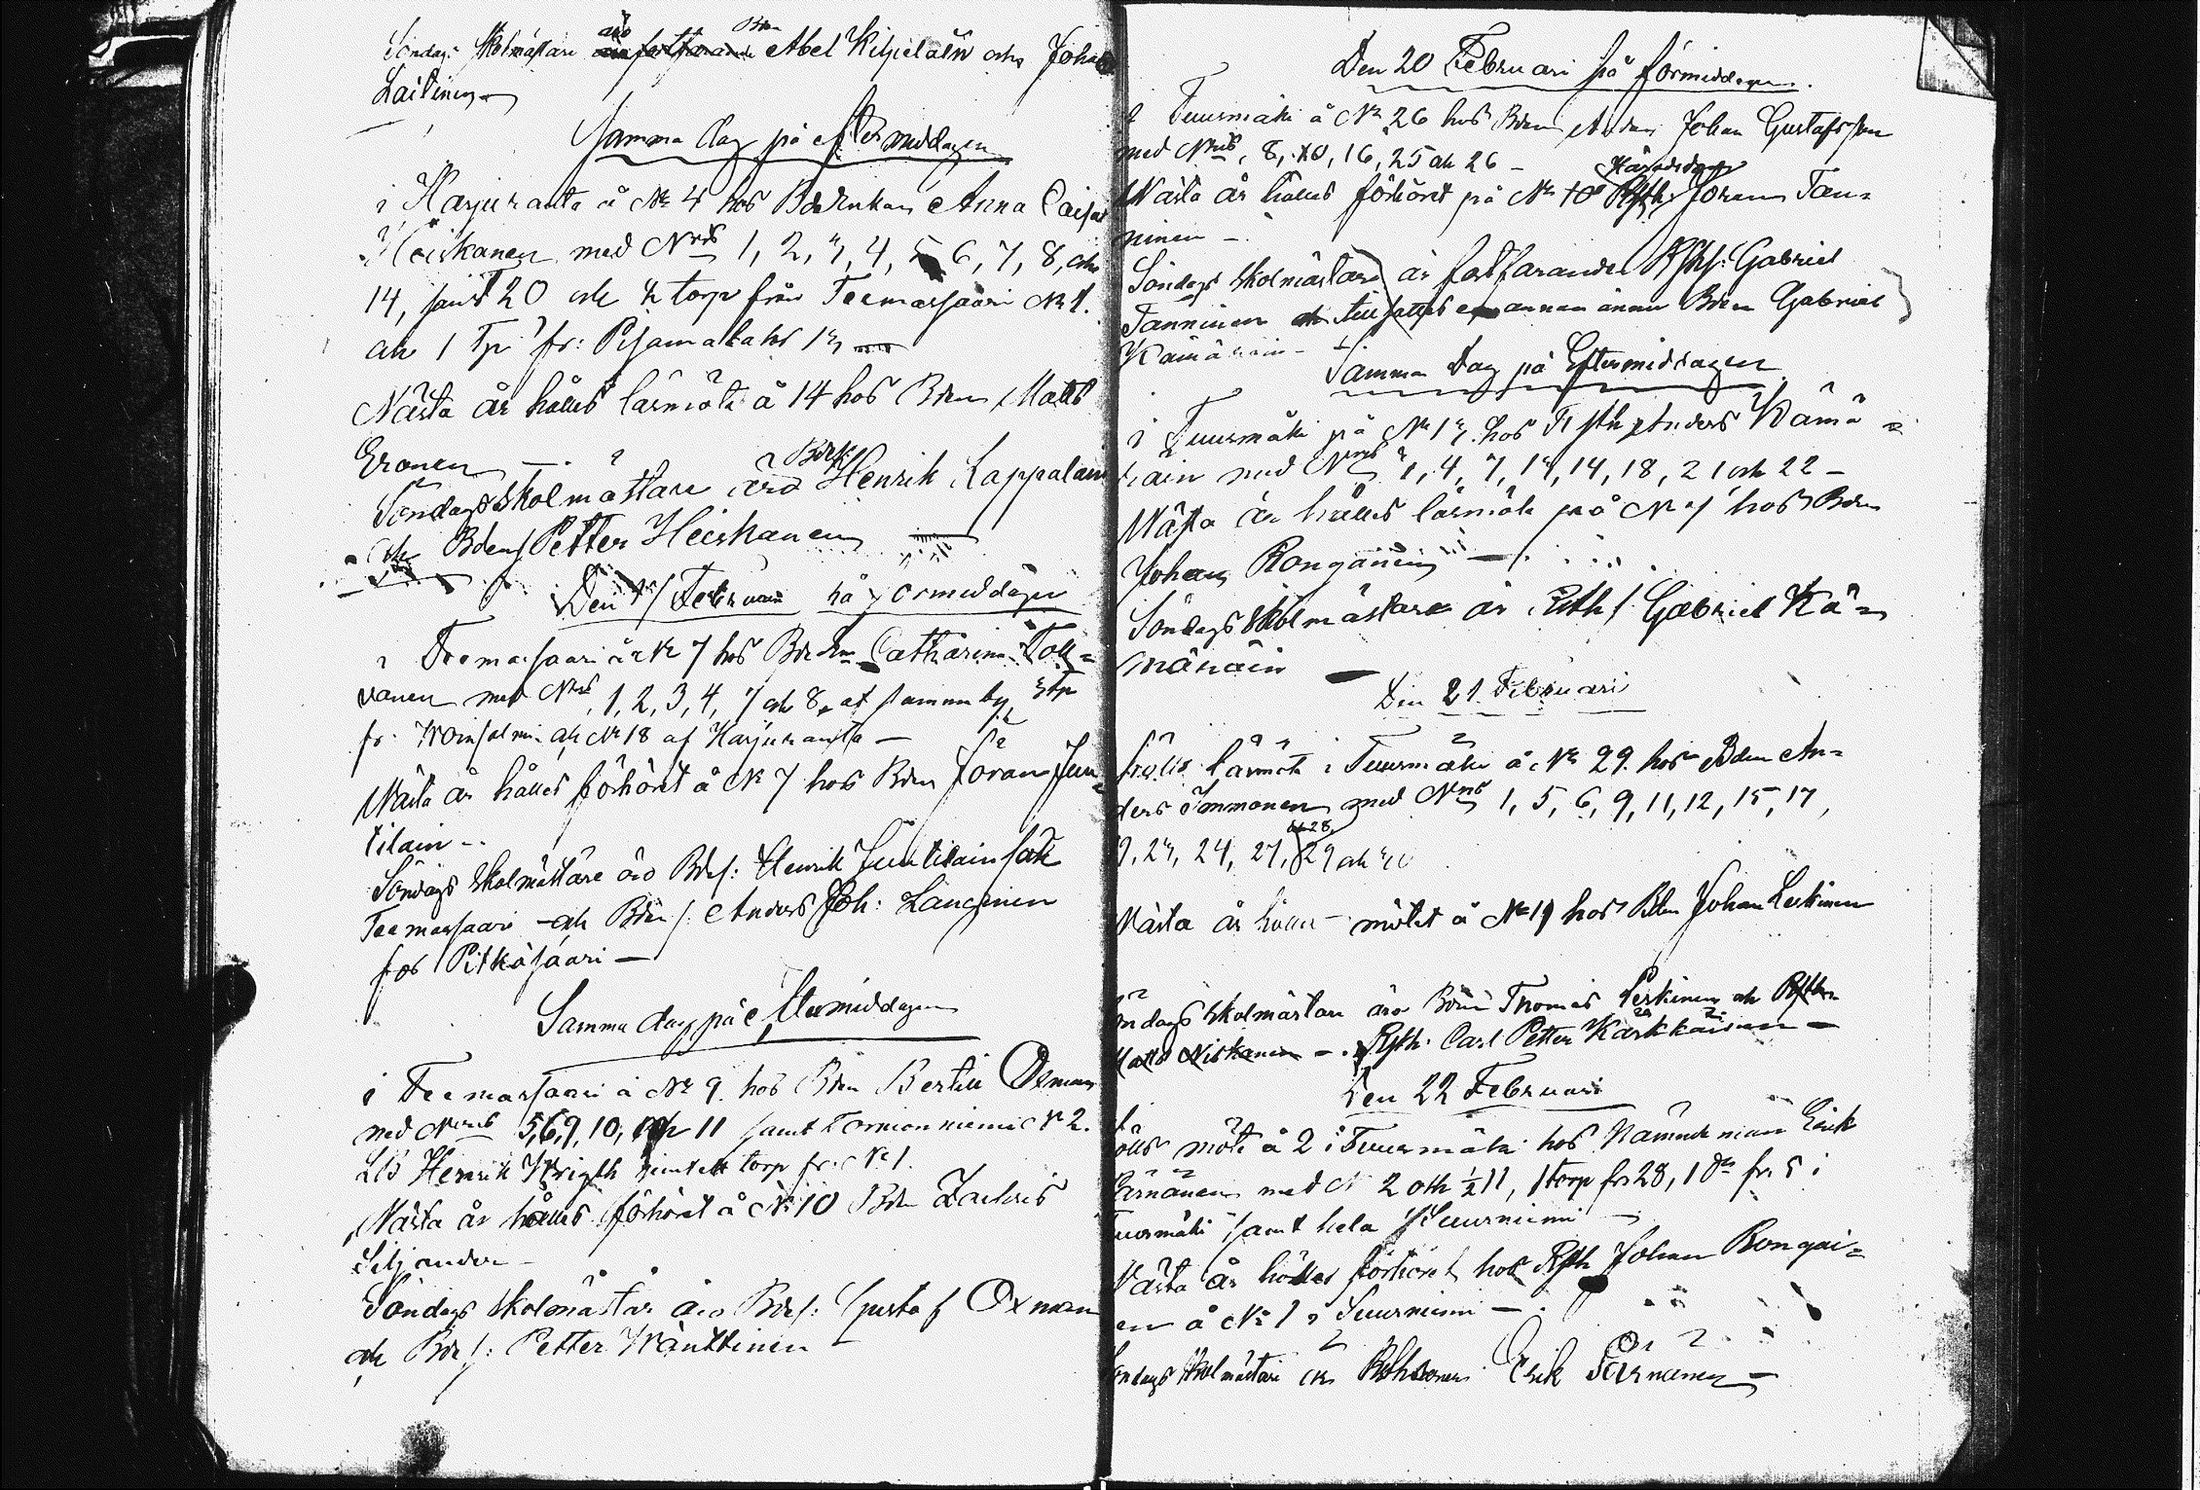 Söndags Skolmästare äro Bdn Abel Kilpeläin och Johan
Laitinen
Samma dag på eftermiddagen
i Harjuranta å No 4 hos Bdeenkan Anna Caisa
Heiskanen med Nris 1, 2, 3, 4, 5, 6, 7, 8, och
14, samt 20 och torp från Teemassaari No 1.
och 1 Tp fr: Pisamalaks 13
Nästa år hålles läsmöte å 14 hos Bdn Matts
Eronen
Söndagsskolmästare äro Bdes: Henrik Lappalain
och Bdens Petter Heiskanen
Den Februari på förmiddagen
i Teemassaari å No 7 hos Catharina Tolt=
vanen med Nris 1, 2, 3, 4, 7 och 8, af samma by,
fr. och No 18 af Harjuranta
Nästa år hålles förhöret å No 7 hos Bdn Göran Jun=
tilain
Söndags Skolmästare äro Bdes: Henrik Juntilain för
Teemassaari och Bdens: Anders Joh: Länginen
för Pitkäsaari
Samma dag på eftermiddagen
i Teemassaari å No 9. hos Bdn Bertil Oxman
med Nris 5, 6, 9, 10, och 11 samt Tornionniemi No 2.
Henrik Wrigth samt ett torp fr: No 1.
Nästa år hålles förhöret å No 10 Bdn Zachris
Siljander
Söndags skolmästar äro Bdes: Gustaf Oxman
och Bdes: Petter Wänttinen
Den 20 Februari på förmiddagen.
i Tuusmäki å No 26 hos Bden Johan Gustafsson
med Nris, 8, 10, 16, 25 och 26
Nästa år hålles förhöret på No 10 Göran Tan=
ninen
Söndags skolmästare är fortfarande Gabriel
Tanninen och tillsattes en annan ännu Bden Gabriel
Kämäräin
Samma Dag på Eftermiddagen
i Tuusmäki på No 13 hos Rsth Anders Kämä=
räin med Nris 3, 4, 7, 13, 14, 18, 21 och 22
Nästa år hålles läsmöte på No hos Bdn
Johan Rongainen
Söndags skolmästare är Gabriel Kä=
märäin
Den 21 Februari
hålls läsmöte i Tuusmäki å No 29. hos Bden An=
ders Immonen med Nris 1, 5, 6, 9, 11, 12, 15, 17,
23, 24, 27, 28, 29 och 30
Nästa år hålles mötet å No 19 hos Bdn Johan Leskinen
Söndags skolmästare äro Bdn Thomas Leskinen och
Matts Niskanen Rsth. Carl Petter Kärkkäinen
Den 22 Februari
hålls möte å 2 i Tuusmäki hos Nämndeman Erik
Pärnänen med No 2 och ½ 11, 1 torp fr 28, 1 do fr: 5 i
Tuusmäki samt hela Suurniemi
Nästa år hålles förhöret hos Rsth Johan Rongai=
nen å No 1 i Suurniemi
Söndags skolmästare är Erik Pärnänen